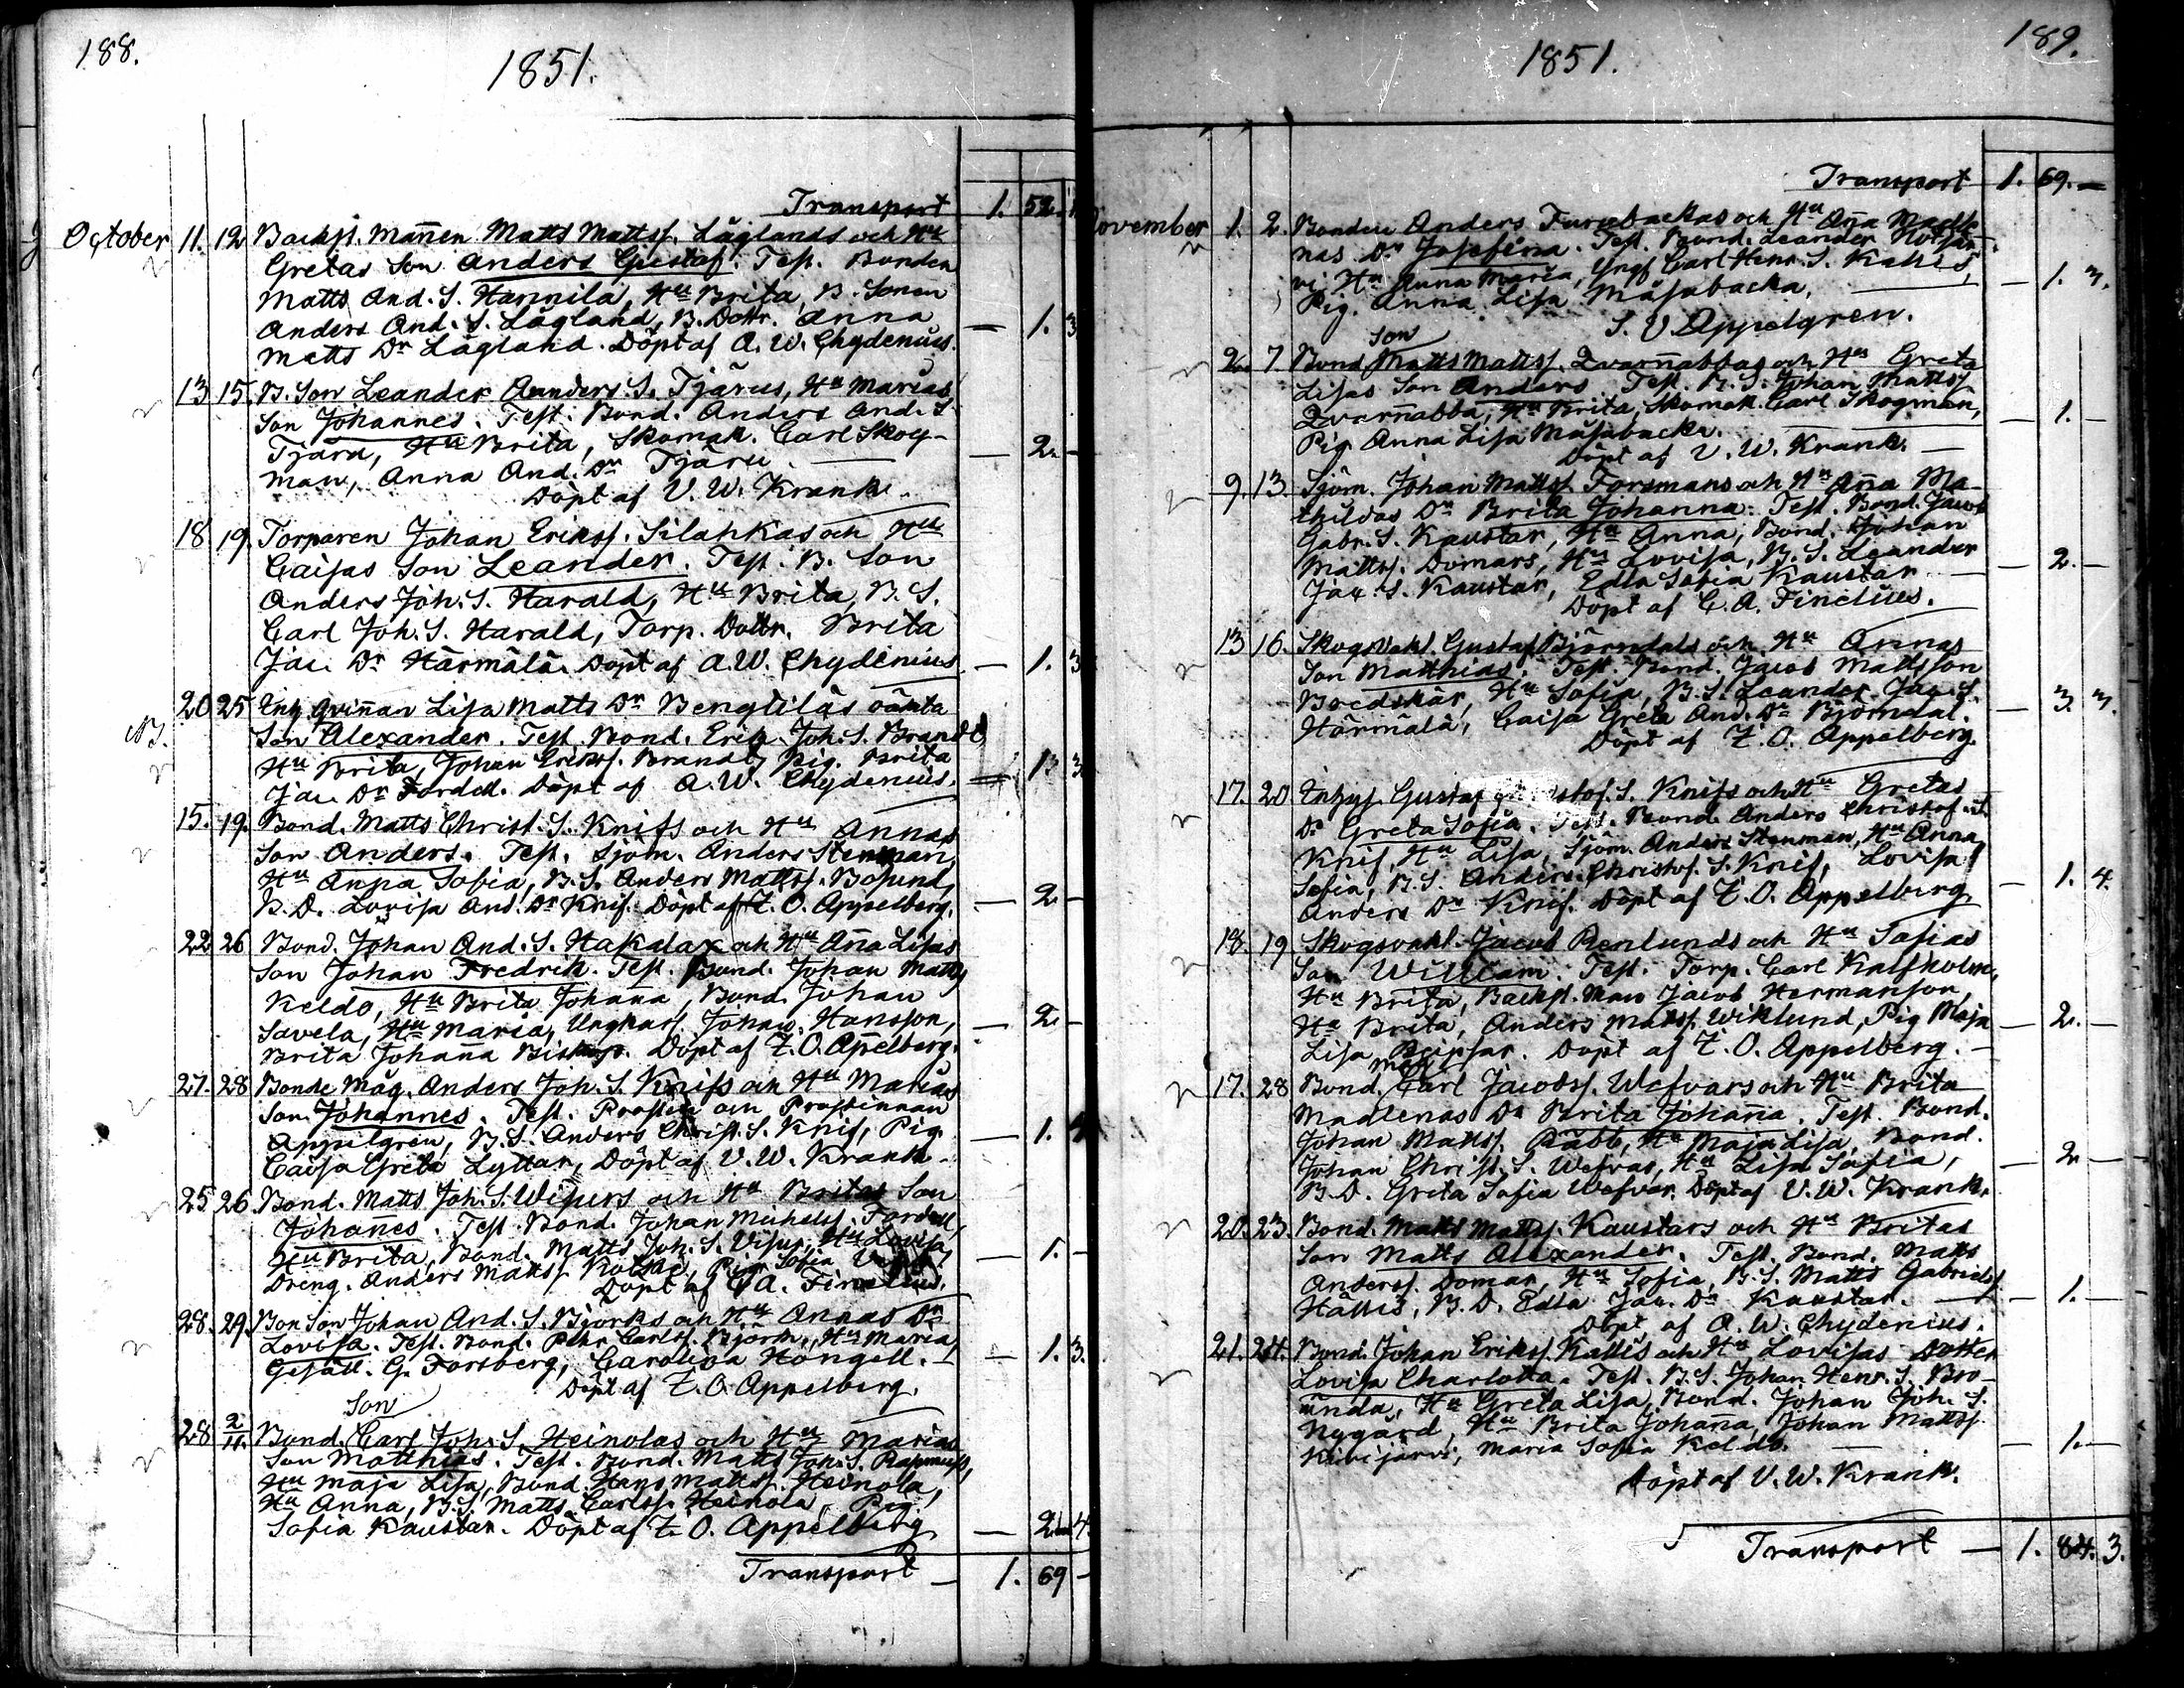 188.
1851.
Transport 1. 52.
October 11. 12 Backst. mannen Matts Mattss. Låglands och Hu
Gretas Son Anders Gustaf. Test. Bonden
Matts And. S. Harmila, Hu Brita, B. Sonen
Anders And. S. Lågland, B. Dottr. Anna — 1. 3
Matts Dr Lågland. Döpt af A. W. Chydenius.
13 15. B. Son Leander Anders. S. Tjärus, Hu Marias
Son Johannes. Test. Bond. Anders And. S.
Tjäru, Hu Brita, Skomak. Carl Skog- — 2. —
man, Anna And. Dr Tjäru. —
Döpt af V. W. Krank.
18. 19. Torparen Johan Erikss. Silahkas och Hu
Caisas Son Leander. Test. B. Son
Anders Joh. S. Harald, Hu Brita, B. S.
Carl Joh. S. Harald, Torp. Dottr. Brita
Jac. Dr Härmälä. Döpt af A. W. Chydenius. — 1. 3
20 25 Enk. qvinnan Lisa Matts Dr Bengtilas oäkta
NB. Son Alexander. Test. Bond. Erik Joh. S. Brandt,
Hu Brita, Johan Erikss. Brandt, Pig. Brita — 1. 3
Jac. Dr Fordell. Döpt af A. W. Chydenius.
15. 19. Bond. Matts Christ. S. Knifs och Hu Annas
Son Anders. Test. Sjöm. Anders Stenman,
Hu Anna Sofia, B. S. Anders Mattss. Bosund,
B. D. Lovisa And. Dr Knif. Döpt af Z. O. Appelberg. — 2 —
22 26 Bond. Johan And. S. Hakalax och Hu Anna Lisas
Son Johan Fredrik. Test. Bond. Johan Mattss
Keldo, Hu Brita Johanna, Bond. Johan
Savela, Hu Maria, Ungkarl Johan Hansson, — 2 —
Brita Johanna Biskops. Döpt af Z. O. Apelberg.
27. 28 Bonde Måg. Anders Joh. S. Knifs och Hu Marias
Son Johannes. Test. Prosten och Prostinnan
Appelgren, B. S. Anders Christ. S. Knif, Pig. — 1. 4
Caisa Greta Lyttar, Döpt af V. W. Krank.
25 26 Bond. Matts Joh. S. Wisurs och Hu Britas Son
Johannes. Test. Bond. Johan Michelss. Fordell,
Hu Brita, Bond. Matts Joh. S. Visur, Hu Lovisa, — 1. —
Dreng. Anders Mattss. Pig. Sofia
Döpt af C. A. Finelius.
28. 29. Bon Son Johan And. S. Björks och Hu Annas Dr
Lovisa. Test. Bond. Pehr Carlss. Björk, Hu Maria,
Gesäll. G. Forsberg, Carolina Hongell. — 1. 3.
Döpt af Z. O. Appelberg.
Son
28 2/11. Bond. Carl Joh. S. Heinolas och Hu Marias
Son Matthias. Test. Bond. Matts Joh. S. Rasmuss,
Hu Maja Lisa, Bond. Hans Mattss. Heinola,
Hu Anna, B. S. Matts Carlss. Heinola, Pig.
Sofia Kaustar. Döpt af Z. O. Appelberg — 2 4
Transport — 1. 69 —
189.
1851.
Transport 1. 69. —
November 1. 2. Bonden Anders Furubackas och Hu Anna Madle
nas Dr Josefina. Test. Bond. Leander Hotjär-
vi, Hu Anna Maria, Yngl. Carl Henr. S. Kallis,
Pig. Anna Lisa Måsabacka. — 1. 3.
S. V. Appelgren.
Son
2. 7 Bond. Matts Mattss. Qvarnabbas och Hu Greta
Lisas Son Anders. Test. B. S. Johan Mattss
Qvarnabba, Hu Brita, Skomak. Carl Skogman, — 1. —
Pig. Anna Lisa Måsabacka.
Döpt af V. W. Krank. —
9. 13. Sjöm. Johan Mattss. Forsmans och Hu Anna Ma-
thildas Dr Brita Johanna. Test. Bond. Jacob
Gabr. S. Kaustar, Hu Anna, Bond. Johan
Mattss. Domars, Hu Lovisa, B. S. Leander — 2. —
Jac. S. Kaustar, Edla Sofia Kaustar.
Döpt af C. A. Finelius.
13 16. Skogsvakt. Gustaf Björndals och Hu Annas
Son Matthias. Test. Bond. Jacob Mattsson
Bredskär, Hu Sofia, B. S. Leander Jac. S. — 3. 3.
Härmälä, Caisa Greta And. Dr Björndal.
Döpt af Z. O. Appelberg.
17. 20 Inhys. Gustaf Christof. S. Knifs och Hu Gretas
Dr Greta Sofia. Test. Bond. Anders Christof. S.
Knif, Hu Lisa, Sjöm. Anders Stenman, Hu Anna
Sofia, B. S. Anders Christof. S. Knif, Lovisa — 1. 4.
Anders Dr Knif. Döpt af Z. O. Appelberg
18. 19 Skogsvakt. Jacob Renlunds och Hu Sofias
Son William. Test. Torp. Carl Kalfholm,
Hu Brita, Backst. Man Jacob Hermansson,
Hu Brita, Anders Mattss. Wiklund, Pig Maja — 2. —
Lisa Döpt af Z. O. Appelberg. —
Måg
17. 28 Bond. Carl Jacobss. Wefvars och Hu Brita
Madlenas Dr Brita Johanna. Test. Bond.
Johan Mattss. Rabb, Hu Maja Lisa, Bond.
Johan Christ. S. Wefvar, Hu Lisa Sofia, — 2 —
B. D. Greta Sofia Wefvar. Döpt af V. W. Krank.
20. 23. Bond. Matts Mattss. Kaustars och Hu Britas
Son Matts Alexander. Test. Bond. Matts
Anderss. Domar, Hu Sofia, B. S. Matts Gabrielss
Hällis, B. D. Edla Jac. Dr Kaustar. — 1. —
Döpt af A. W. Chydenius.
21. 24. Bond. Johan Erikss. Kallis och Hu Lovisas Dotter
Lovisa Charlotta. Test. B. S. Johan Henr. S. Bro-
unda, Hu Greta Lisa, Bond. Johan Joh. S.
Nygård, Hu Brita Johanna, Johan Mattss
Kivijärvi, Maria Sofia Keldo. — 1. —
Döpt af V. W. Krank.
Transport — 1. 84. 3.